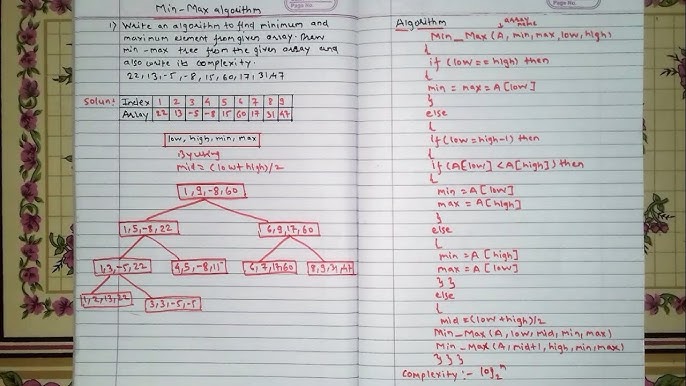 Min-Max algorithm
1) Write an algorithm to find minimum and
maximum element from given array. Draw
min-max tree from the given array and
also write its complexity.
22, 13, -5, -8, 15, 60, 17, 31, 47
Solun: Index 1 2 3 4 5 6 7 8 9
Array 22 13 -5 -8 15 60 17 31 47
low, high, min, max
By using
mid = (low+high)/2
1, 9, -8, 60
1, 5, -8, 22
6, 9, 17, 60
1, 3, -5, 22
4, 5, -8, 15
6, 7, 17, 60
8, 9, 31, 47
1, 2, 13, 22
3, 3, -5, -5
Page No.
Page No.
Algorithm
array name
Min_Max (A, min, max, low, high)
{
if (low == high) then
{
min = max = A[low]
}
else
{
if (low = high-1) then
{
if (A[low] < A[high]) then
{
min = A[low]
max = A[high]
}
else
{
min = A[high]
max = A[low]
} }
else
{
mid = (low+high)/2
Min_Max (A, low, mid, min, max)
Min_Max (A, mid+1, high, min, max)
} } }
Complexity :- log₂n